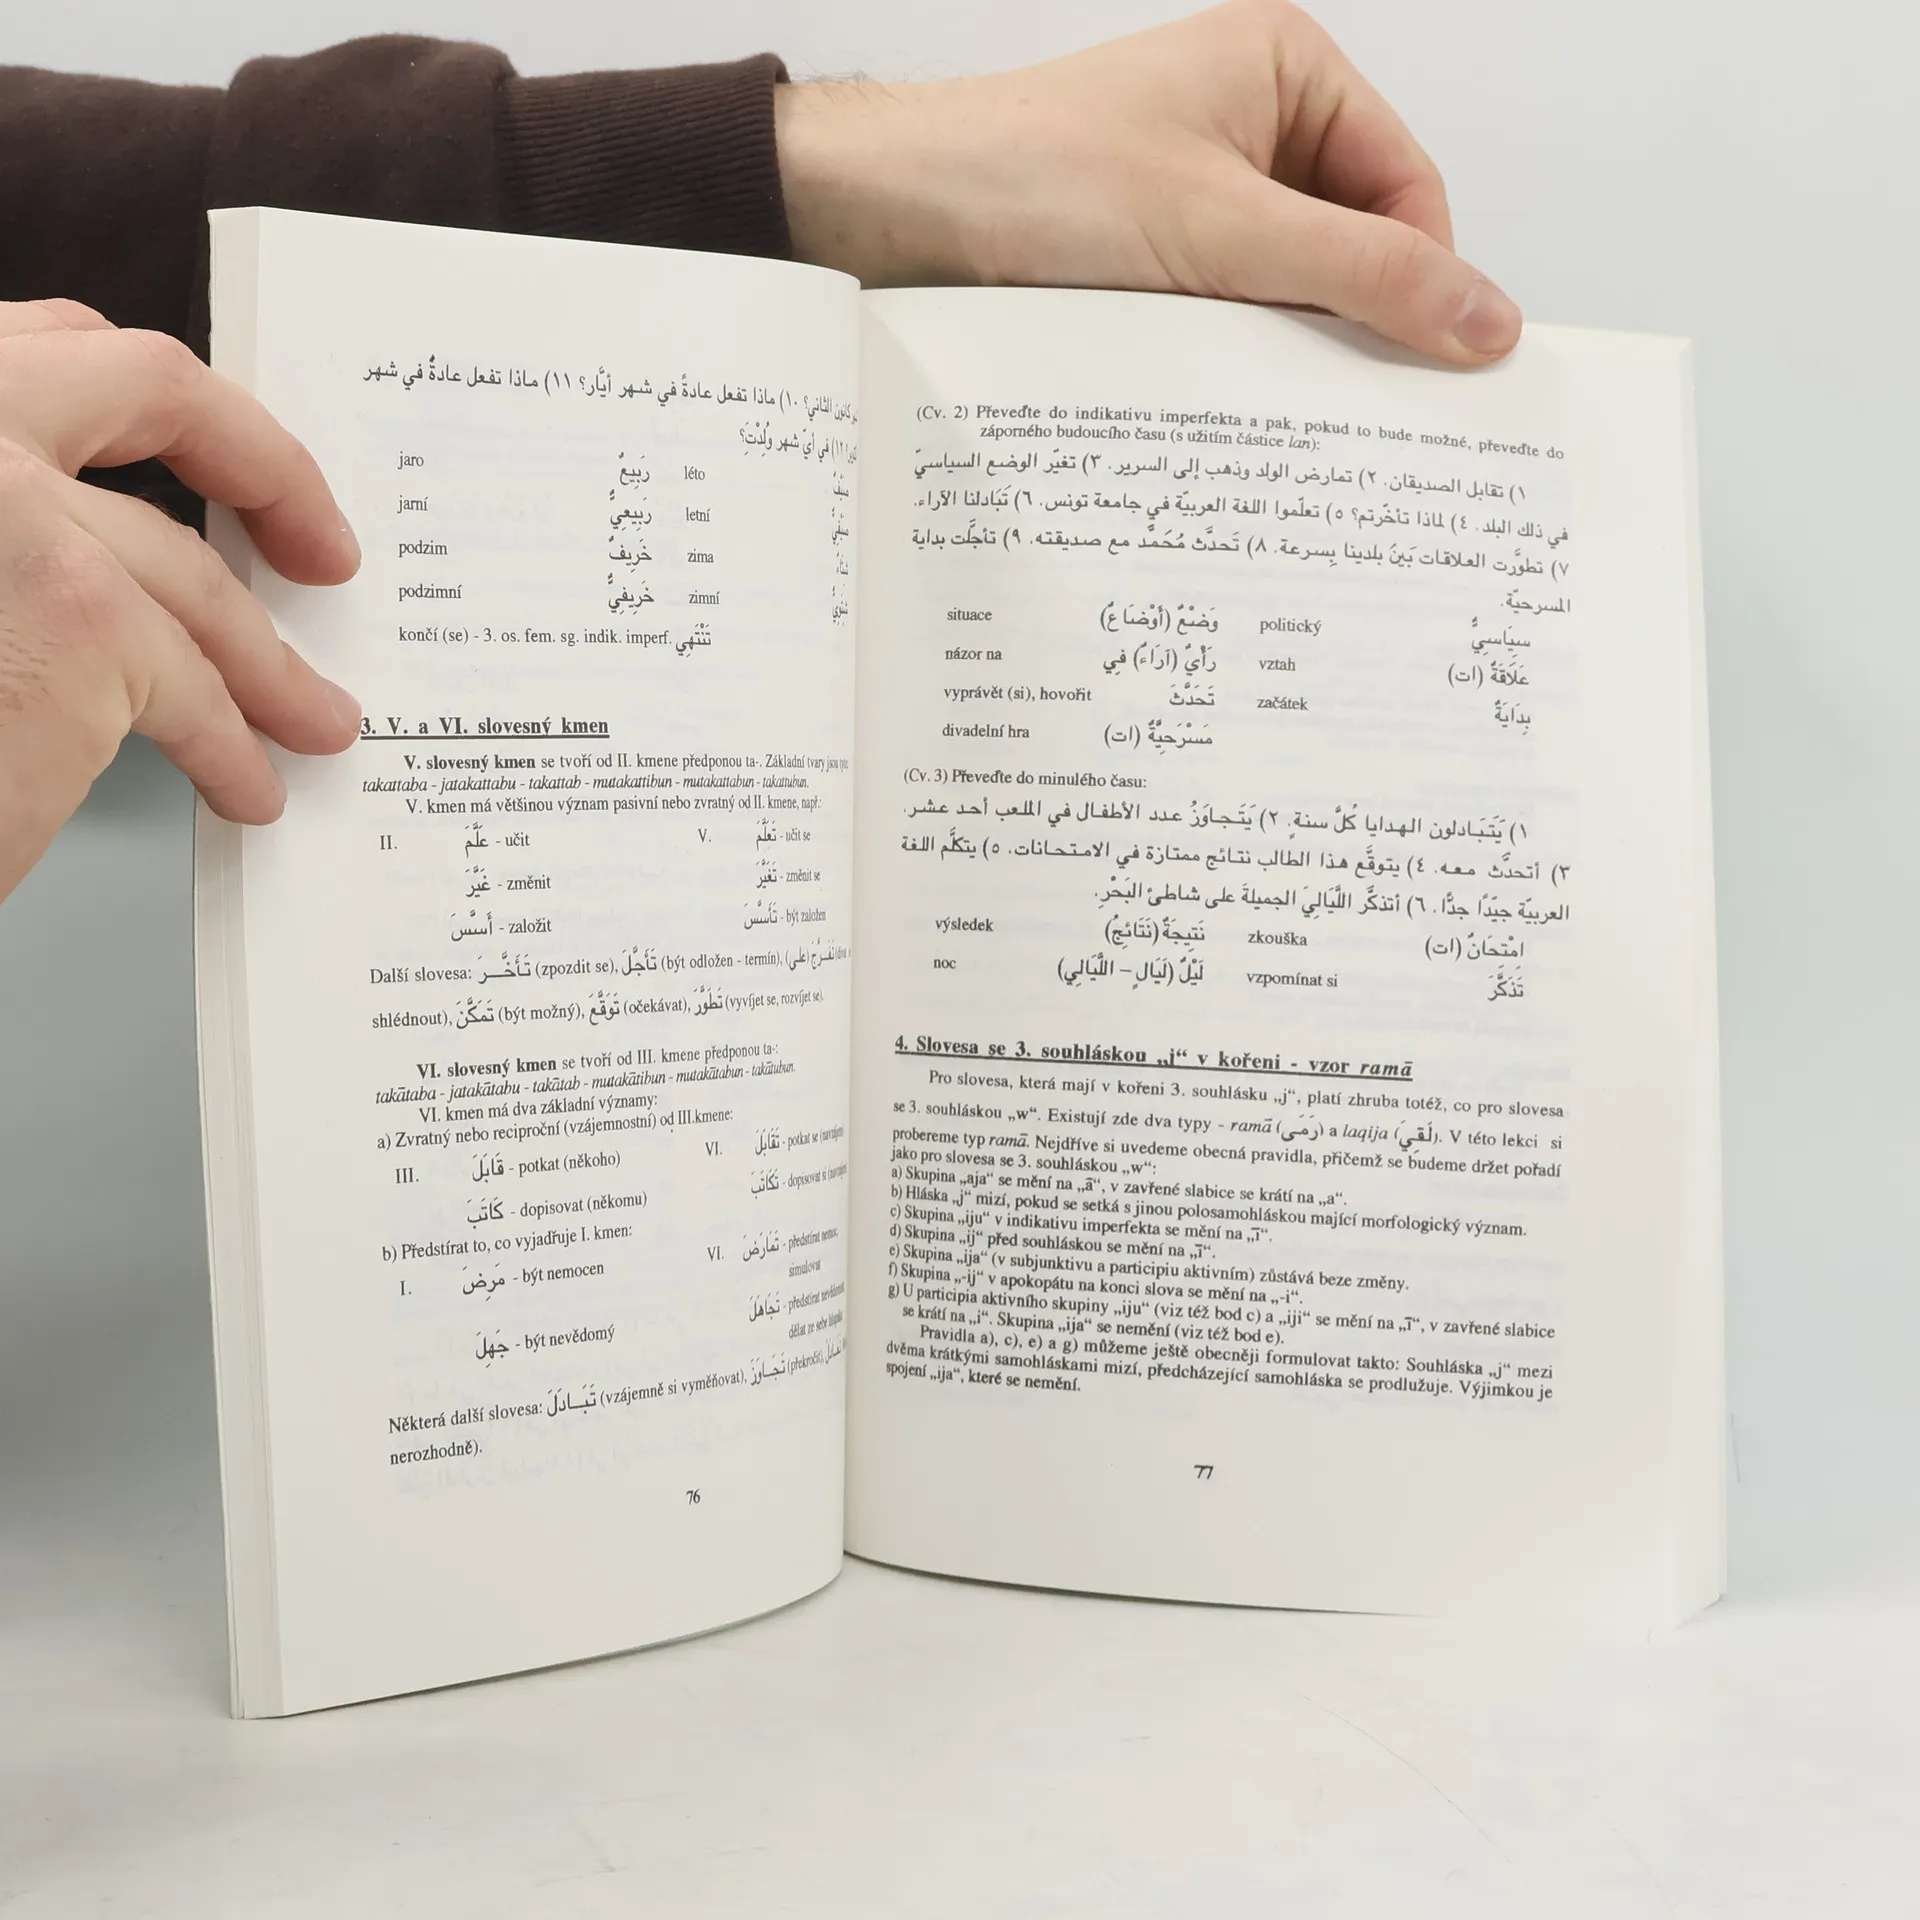 كانون الثاني؟ ١٠) ماذا تفعل عادةً في شهر أيَّار؟ ١١) ماذا تفعل عادةً في شهر
١٢) في أيّ شهر وُلِدْتَ؟
jaro رَبِيعٌ léto
jarní رَبِيعِيٌّ letní
podzim خَرِيفٌ zima
podzimní خَرِيفِيٌّ zimní
končí (se) - 3. os. fem. sg. indik. imperf. تَنْتَهِي
3. V. a VI. slovesný kmen
V. slovesný kmen se tvoří od II. kmene předponou ta-. Základní tvary jsou
takattaba - jatakattabu - takattab - mutakattibun - mutakattabun - takattubun.
V. kmen má většinou význam pasivní nebo zvratný od II. kmene, např.:
II. عَلَّمَ - učit V. تَعَلَّمَ - učit se
غَيَّرَ - změnit تَغَيَّرَ - změnit se
أَسَّسَ - založit تَأَسَّسَ - být založen
Další slovesa: تَأَخَّرَ (zpozdit se), تَأَجَّلَ (být odložen - termín), تَفَرَّجَ (على)
shlédnout), تَمَكَّنَ (být možný), تَوَقَّعَ (očekávat), تَطَوَّرَ (vyvíjet se, rozvíjet se).
VI. slovesný kmen se tvoří od III. kmene předponou ta-:
takātaba - jatakātabu - takātab - mutakātibun - mutakātabun - takātubun.
VI. kmen má dva základní významy:
a) Zvratný nebo reciproční (vzájemnostní) od III.kmene:
III. قَابَلَ - potkat (někoho) VI. تَقَابَلَ - potkat se
كَاتَبَ - dopisovat (někomu) تَكَاتَبَ - dopisovat si
b) Předstírat to, co vyjadřuje I. kmen:
I. مَرِضَ - být nemocen VI. تَمَارَضَ - předstírat nemoc,
simulovat
جَهِلَ - být nevědomý تَجَاهَلَ - předstírat nevědomost
dělat ze sebe hlupáka
Některá další slovesa: تَبَادَلَ (vzájemně si vyměňovat), تَجَاوَزَ (překročit),
nerozhodně).
76
(Cv. 2) Převeďte do indikativu imperfekta a pak, pokud to bude možné, převeďte do
záporného budoucího času (s užitím částice lan):
١) تقابل الصديقان. ٢) تمارض الولد وذهب إلى السرير. ٣) تغيّر الوضع السياسيّ
في ذلك البلد. ٤) لماذا تأخّرتم؟ ٥) تعلّموا اللغة العربيّة في جامعة تونس. ٦) تَبَادلنا الآراء.
٧) تطوَّرت العلاقات بَيْنَ بلدينا بِسرعة. ٨) تَحدَّث مُحَمَّد مع صديقته. ٩) تأجَّلت بداية
المسرحيّة.
situace وَضْعٌ (أَوْضَاعٌ) politický سِيَاسِيٌّ
názor na رَأْيٌ (آرَاءٌ) فِي vztah عَلَاقَةٌ (ات)
vyprávět (si), hovořit تَحَدَّثَ začátek بِدَايَةٌ
divadelní hra مَسْرَحِيَّةٌ (ات)
(Cv. 3) Převeďte do minulého času:
١) يَتَبَادلون الهدايا كُلَّ سنةٍ. ٢) يَتَجاوَزُ عدد الأطفال في الملعب أحد عشر.
٣) أتحدَّث معه. ٤) يتوقَّع هذا الطالب نتائج ممتازة في الامتحانات. ٥) يتكلَّم اللغة
العربيّة جيّدًا جدًّا. ٦) أتذكَّر اللَّيَالِيَ الجميلةَ على شاطئ البَحْرِ.
výsledek نَتِيجَةٌ (نَتَائِجُ) zkouška اِمْتِحَانٌ (ات)
noc لَيْلٌ (لَيَالٍ – اللَّيَالِي) vzpomínat si تَذَكَّرَ
4. Slovesa se 3. souhláskou „j“ v kořeni - vzor ramā
Pro slovesa, která mají v kořeni 3. souhlásku „j“, platí zhruba totéž, co pro slovesa
se 3. souhláskou „w“. Existují zde dva typy - ramā (رَمَى) a laqija (لَقِيَ). V této lekci si
probereme typ ramā. Nejdříve si uvedeme obecná pravidla, přičemž se budeme držet pořadí
jako pro slovesa se 3. souhláskou „w“:
a) Skupina „aja“ se mění na „ā“, v zavřené slabice se krátí na „a“.
b) Hláska „j“ mizí, pokud se setká s jinou polosamohláskou mající morfologický význam.
c) Skupina „iju“ v indikativu imperfekta se mění na „ī“.
d) Skupina „ij“ před souhláskou se mění na „ī“.
e) Skupina „ija“ (v subjunktivu a participiu aktivním) zůstává beze změny.
f) Skupina „-ij“ v apokopátu na konci slova se mění na „-i“.
g) U participia aktivního skupiny „iju“ (viz též bod c) a „iji“ se mění na „ī“, v zavřené slabice
se krátí na „i“. Skupina „ija“ se nemění (viz též bod e).
Pravidla a), c), e) a g) můžeme ještě obecněji formulovat takto: Souhláska „j“ mezi
dvěma krátkými samohláskami mizí, předcházející samohláska se prodlužuje. Výjimkou je
spojení „ija“, které se nemění.
77